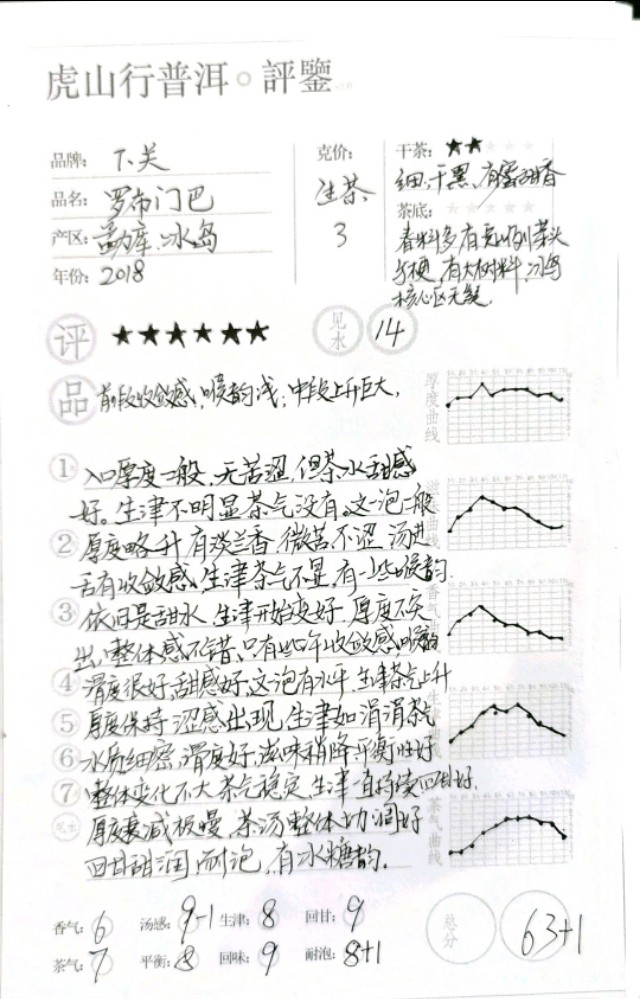 虎山行普洱。評鑒
品牌: 下关
品名: 罗布门巴
产区: 勐库.冰岛
年份: 2018
克价:
生茶
3
干茶: ★★
细,干黑,有蜜甜香
茶底:
春料多有
梗,有大树料,冰岛
核心区无疑.
评 ★★★★★★
见水 14
品 前段收敛感,喉韵浅;中段上升巨大,
厚度曲线
① 入口厚度一般,无苦涩,但茶水甜感
好。生津不明显茶气没有。这一泡一般
② 厚度略升 有淡兰香 微苦不涩 汤过
舌有收敛感,生津茶气不显,有一些喉韵.
③ 依旧是甜水 生津开始变好.厚度不突
出,整体感不错,只有些 收敛感,喉韵
香气曲线
④ 滑度很好,甜感好,这泡有水平 生津茶气上升
⑤ 厚度保持 涩感出现 生津如涓涓茶气
⑥ 水质细密,滑度好,滋味稍降平衡性好
⑦ 整体变化不大 茶气稳定,生津一直持续回甘好.
见水 厚度衰减极慢,茶汤整体协调好
回甘甜润,耐泡,有冰糖韵.
茶气曲线
香气: 6 汤感: 9-1 生津: 8 回甘: 9
茶气: 7 平衡: 8 回味: 9 耐泡: 8+1
总分 63+1